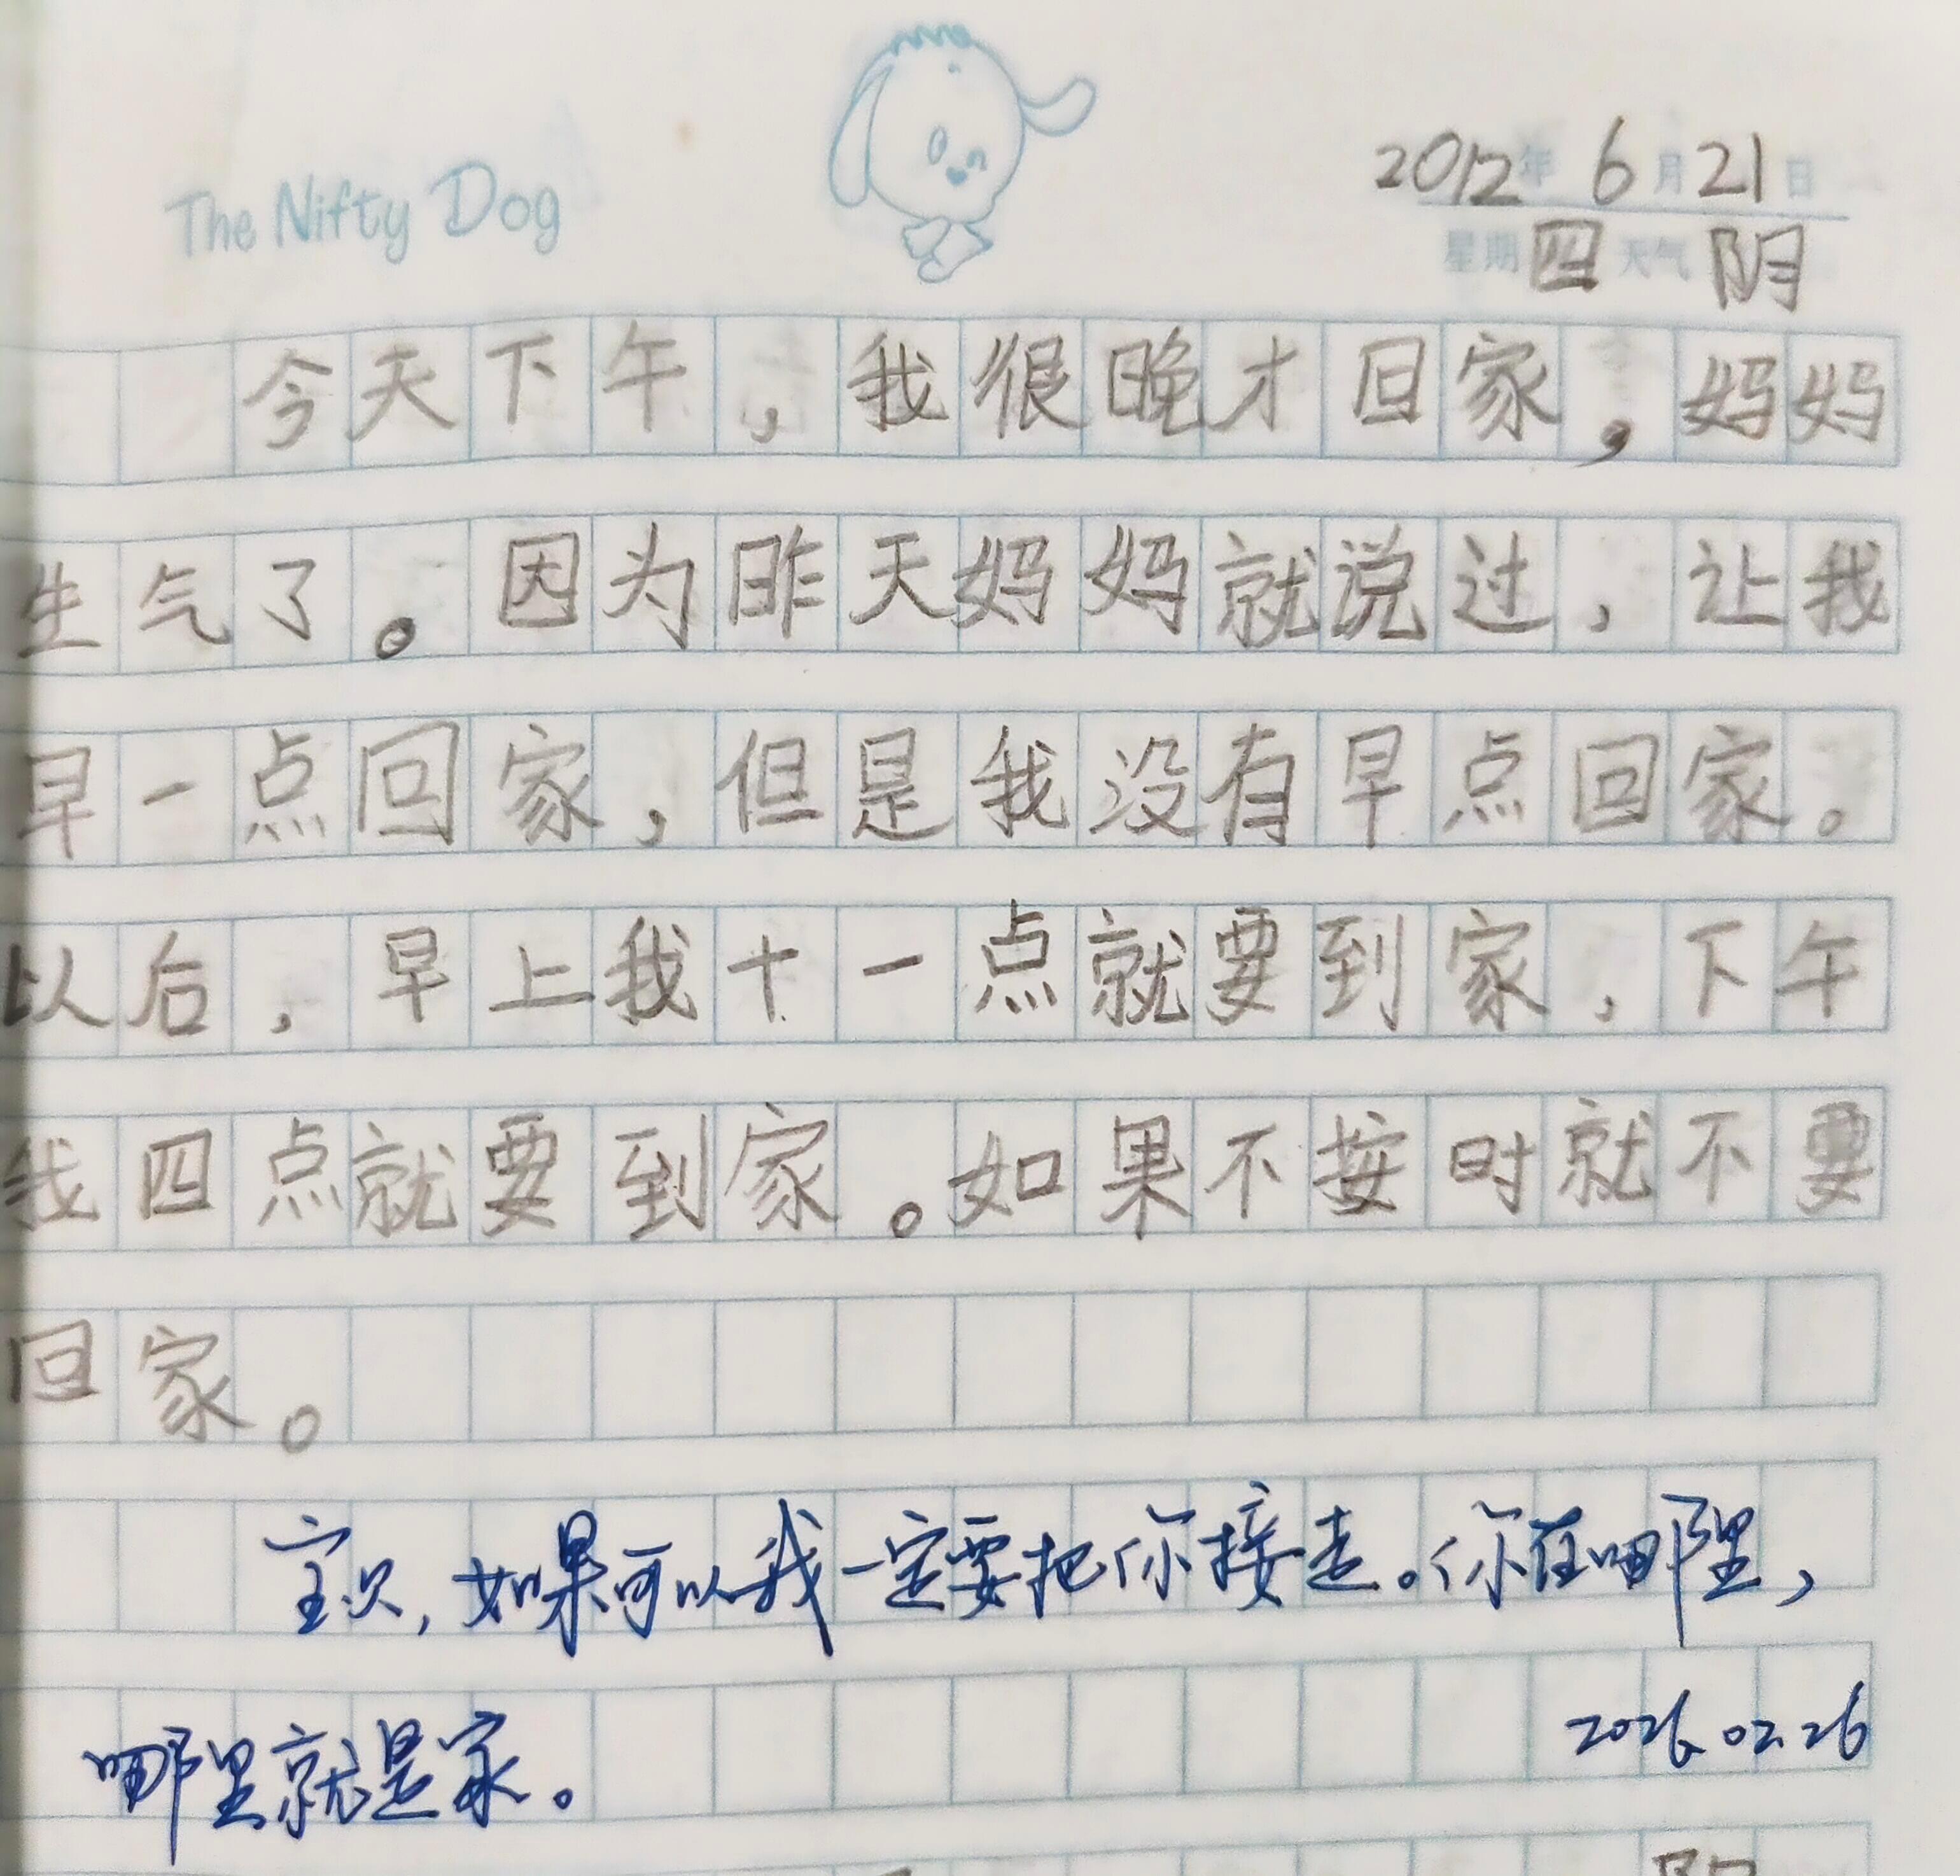 The Nifty Dog
2012年6月21日
星期四天气阴
今天下午,我很晚才回家,妈妈
生气了。因为昨天妈妈就说过,让我
早一点回家,但是我没有早点回家。
以后,早上我十一点就要到家,下午
我四点就要到家。如果不按时就不要
回家。
宝贝,如果可以我一定要把你接走。你在哪里,
哪里就是家。
2026.02.26